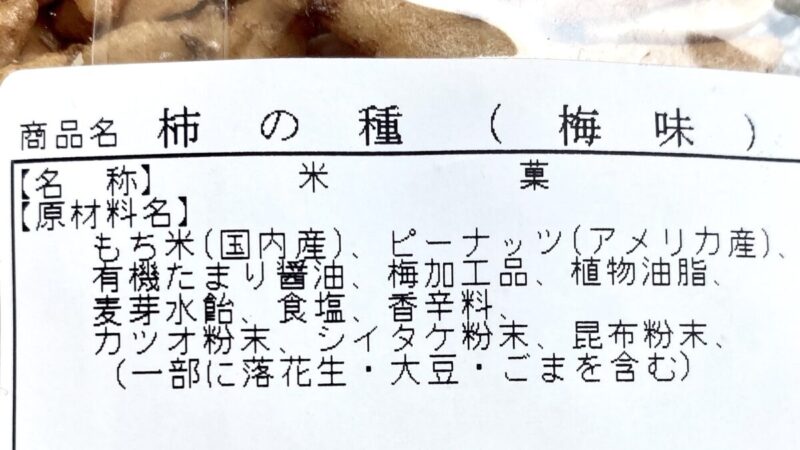 商品名 柿の種(梅味)
【名 称】 米 菓
【原材料名】
もち米(国内産)、ピーナッツ(アメリカ産)、
有機たまり醤油、梅加工品、植物油脂、
麦芽水飴、食塩、香辛料、
カツオ粉末、シイタケ粉末、昆布粉末、
(一部に落花生・大豆・ごまを含む)